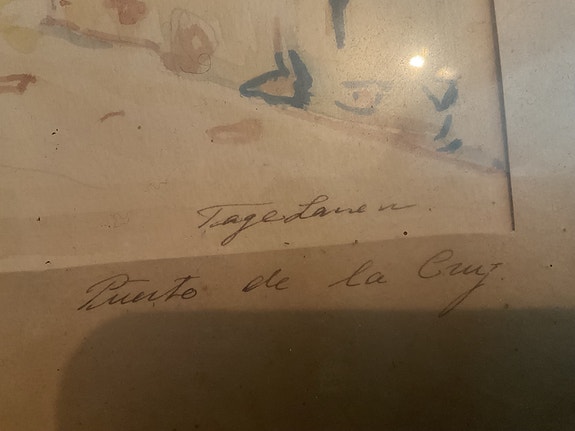 Tage Lansen.
Puerto de la Cruz.